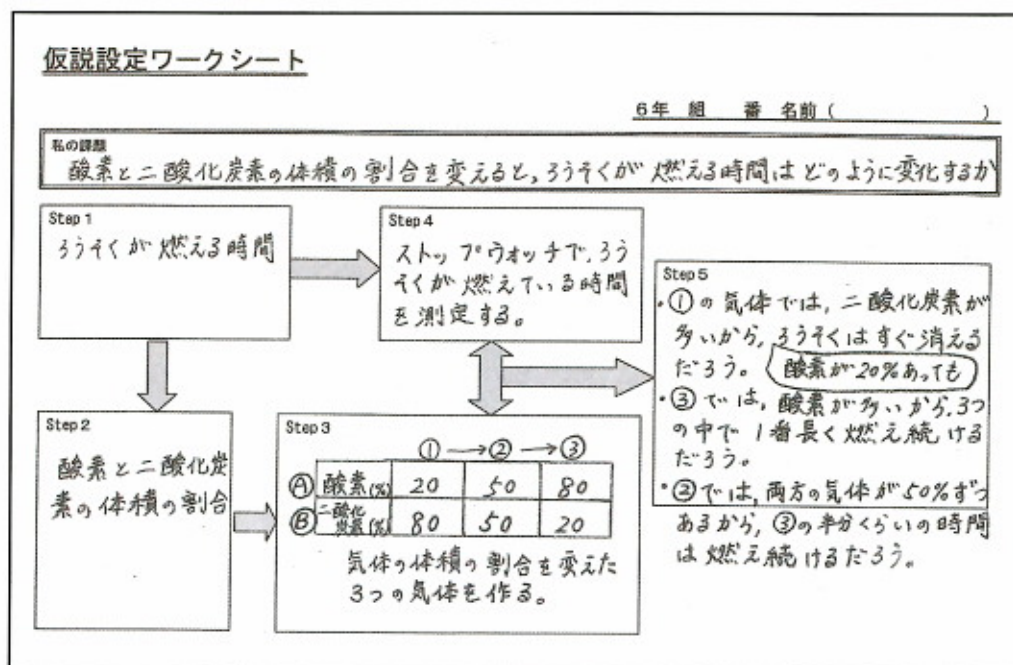 仮説設定ワークシート
6年 組 番 名前 ( )
私の課題
酸素と二酸化炭素の体積の割合を変えると,ろうそくが燃える時間はどのように変化するか
Step 1
ろうそくが燃える時間
Step 2
酸素と二酸化炭
素の体積の割合
Step 3
①→②→③
Ⓐ 酸素(%) 20 50 80
Ⓑ 二酸化炭素(%) 80 50 20
気体の体積の割合を変えた
3つの気体を作る。
Step 4
ストップウォッチで,ろう
そくが燃えている時間
を測定する。
Step 5
・①の気体では,二酸化炭素が
多いから,ろうそくはすぐ消える
だろう。 酸素が20%あっても
・③では,酸素が多いから,3つ
の中で1番長く燃え続ける
だろう。
・②では,両方の気体が50%ずつ
あるから,③の半分くらいの時間
は燃え続けるだろう。